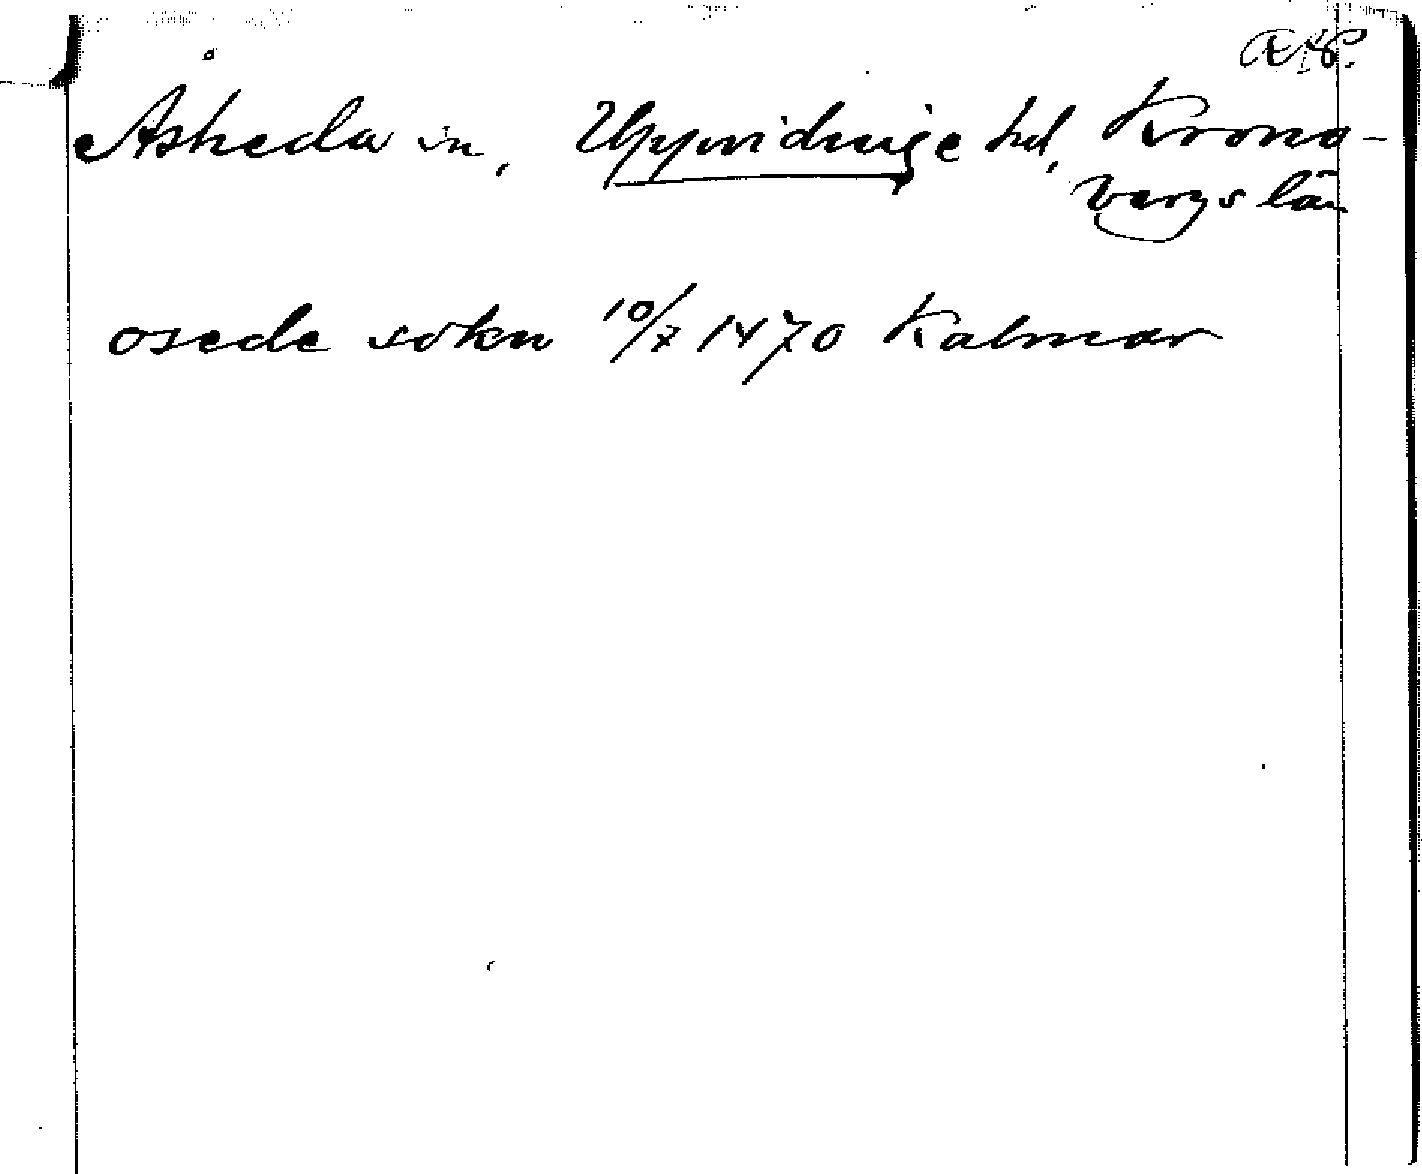 Åsheda sn, Uppvidinge hd, Krono-
bergs län
osede sokn 10/7 1470 Kalmar